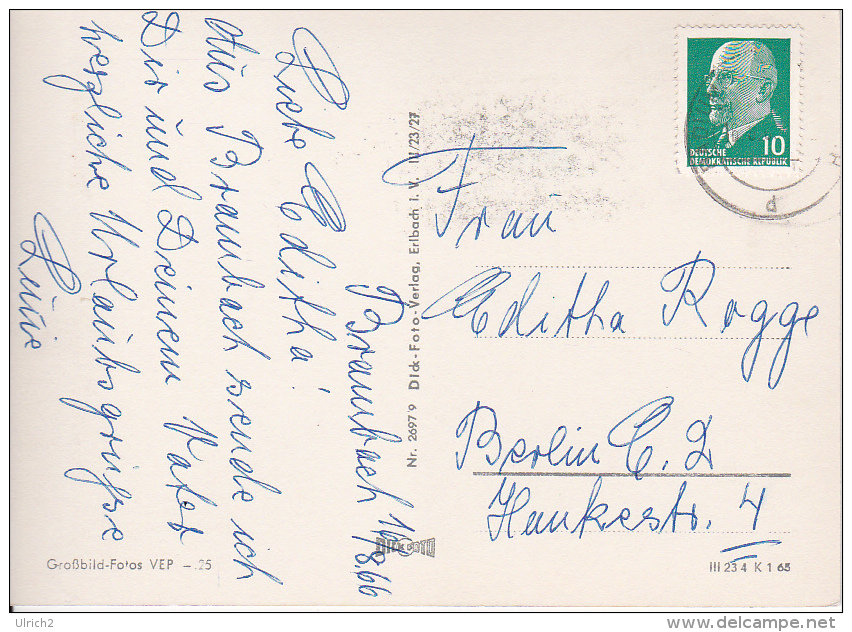 Brambach 16/8.66
Liebe Editha!
Aus Brambach sende ich
Dir und Deinem Vater
herzliche Urlaubsgrüsse
Luzie
Großbild-Fotos VEP –.25
Nr. 2697 9 Dick-Foto-Verlag, Erlbach i. V. III/23/27
DICK FOTO
DEUTSCHE
DEMOKRATISCHE REPUBLIK
10
d
Frau
Editha Rogge
Berlin C. 2
Hankestr. 4
III 23 4 K 1 65
Ulrich2
www.delcampe.net